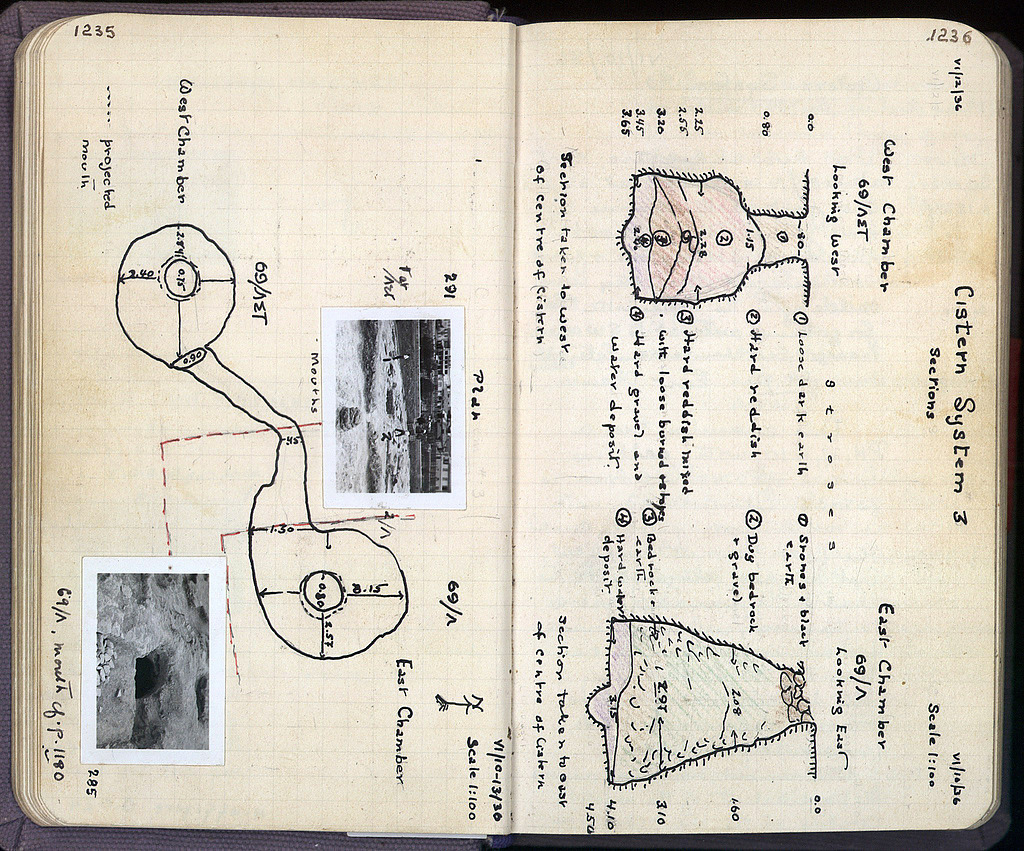 1236
VI/12/36
VI/10/36
Cistern System 3
Sections
Scale 1:100
West Chamber
69/ΛΣΤ
Looking West
0.0
0.80
2.25
2.55
3.20
3.45
3.65
.80
1.15
2.28
① Loose dark earth
② Hard reddish
③ Hard reddish mixed
with loose burned
④ Hard gravel and
water deposit.
Section taken to west
of centre of Cistern
East Chamber
69/Λ
Looking East
① Stones + black
earth
② Dug bedrock
+ gravel
③ Bedrock +
earth
④ Hard water
deposit.
2.08
2.95
3.15
0.0
1.60
3.10
4.10
4.50
Section taken to east
of centre of Cistern
1235
VI/10-13/36
Scale 1:100
N
Plan
291
69/Λ
East Chamber
Mouths
69/ΛΣΤ
West Chamber
projected
mouth
2.84
2.40
0.75
0.90
.45
1.30
0.80
3.15
2.57
285
69/Λ, mouth cf. p. 1180